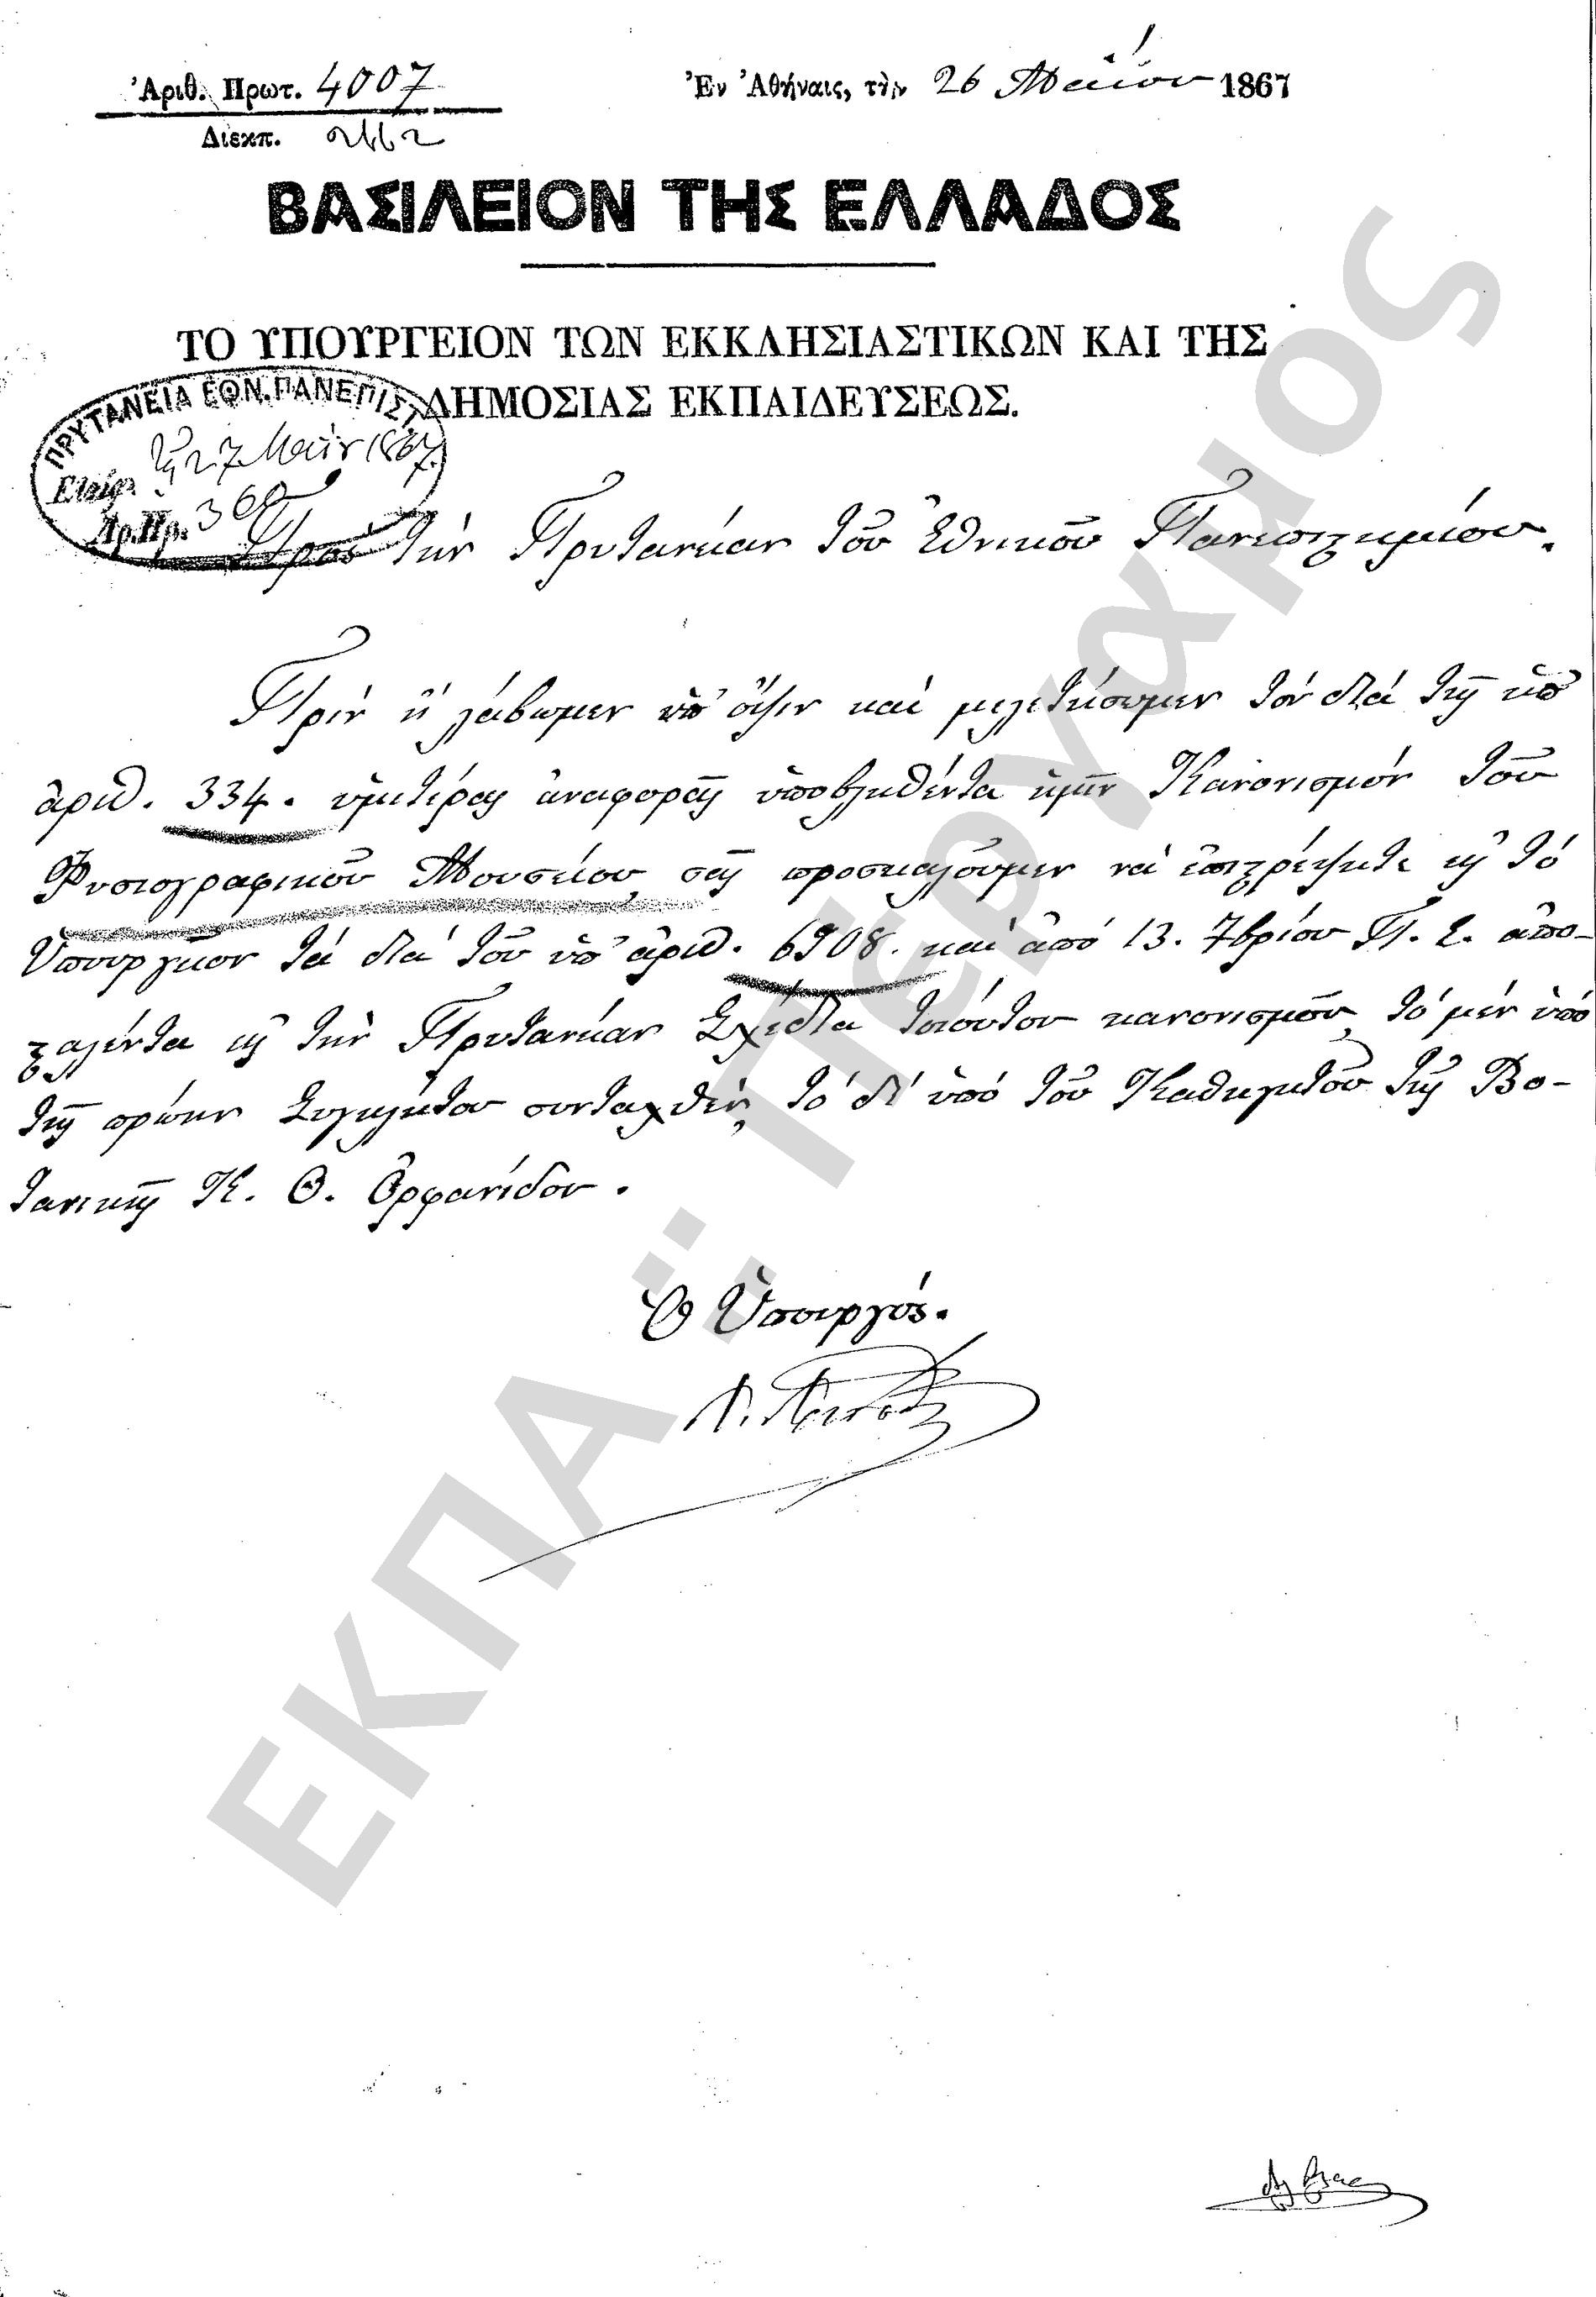 Ἀριθ. Πρωτ. 4007
Διεκπ.
Ἐν Ἀθήναις, τὴν 26 Μαΐου 1867
ΒΑΣΙΛΕΙΟΝ ΤΗΣ ΕΛΛΑΔΟΣ
ΤΟ ΥΠΟΥΡΓΕΙΟΝ ΤΩΝ ΕΚΚΛΗΣΙΑΣΤΙΚΩΝ ΚΑΙ ΤΗΣ
ΔΗΜΟΣΙΑΣ ΕΚΠΑΙΔΕΥΣΕΩΣ.
ΠΡΥΤΑΝΕΙΑ ΕΘΝ. ΠΑΝΕΠΙΣΤ
Εἰσήχ. τῇ 27 Μαΐου 1867.
Ἀρ. Πρ. 360
Πρὸς τὴν Πρυτανείαν τοῦ Ἐθνικοῦ Πανεπιστημίου.
Πρὶν ἢ λάβωμεν ὑπ' ὄψιν καὶ μελετήσωμεν τὸν διὰ τῆς ὑπ'
ἀριθ. 334. ὑμετέρας ἀναφορᾶς ὑποβληθέντα ἡμῖν Κανονισμὸν τοῦ
Φυσιογραφικοῦ Μουσείου, σᾶς προσκαλοῦμεν νὰ ἐπιστρέψητε εἰς τὸ
Ὑπουργεῖον τὰ διὰ τοῦ ὑπ' ἀριθ. 6908. καὶ ἀπὸ 13. 7βρίου Π. Ε. ἀπο-
σταλέντα εἰς τὴν Πρυτανείαν Σχέδια τοιούτου κανονισμοῦ, τὸ μὲν ὑπὸ
τῆς πρώην Συγκλήτου συνταχθέν, τὸ δὲ ὑπὸ τοῦ Καθηγητοῦ τῆς Βο-
τανικῆς Κ. Θ. Ὀρφανίδου.
Ὁ Ὑπουργός.
ΕΚΠΑ - ΠΕΡΓΑΜΟΣ